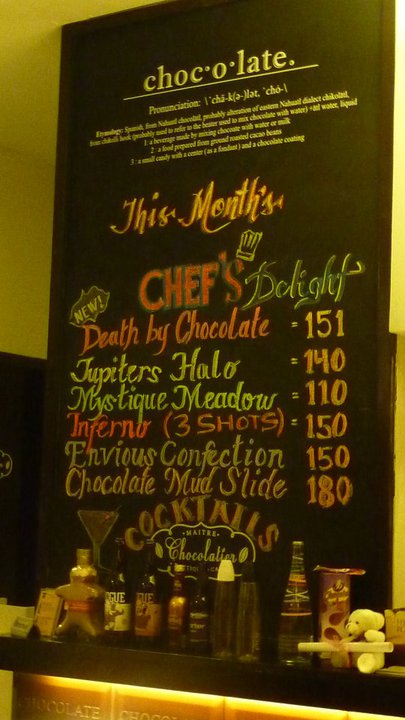 choc·o·late.
Pronunciation: \ˈchä-k(ə-)lət, ˈchȯ-\
Etymology: Spanish, from Nahuatl chocolātl, probably alteration of eastern Nahuatl dialect chikolātl,
from chikolli hook (probably used to refer to the beater used to mix chocolate with water) +ātl water, liquid
1 : a beverage made by mixing chocoate with water or milk
2 : a food prepared from ground roasted cacao beans
3 : a small candy with a center (as a fondant) and a chocolate coating
This Month's
CHEF'S Delight
NEW!
Death by Chocolate = 151
Jupiters Halo = 140
Mystique Meadow = 110
Inferno (3 SHOTS) = 150
Envious Confection 150
Chocolate Mud Slide 180
COCKTAILS
MAITRE
Chocolatier
CHOCOLATE